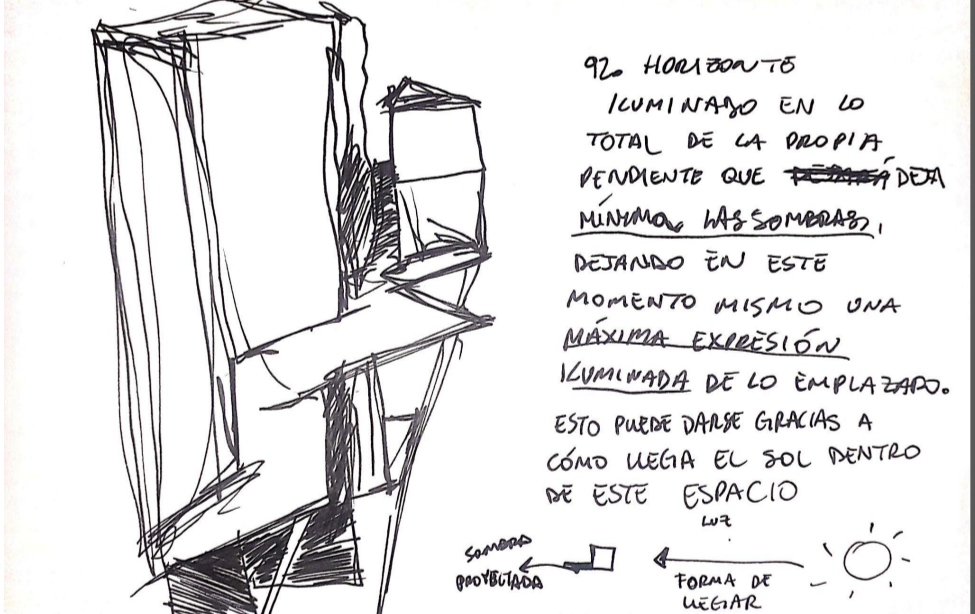 92. HORIZONTE
ILUMINADO EN LO
TOTAL DE LA PROPIA
PENDIENTE QUE DEJA
MÍNIMA LAS SOMBRAS,
DEJANDO EN ESTE
MOMENTO MISMO UNA
MÁXIMA EXPRESIÓN
ILUMINADA DE LO EMPLAZADO.
ESTO PUEDE DARSE GRACIAS A
CÓMO LLEGA EL SOL DENTRO
DE ESTE ESPACIO
LUZ
SOMBRA
PROYECTADA
FORMA DE
LLEGAR